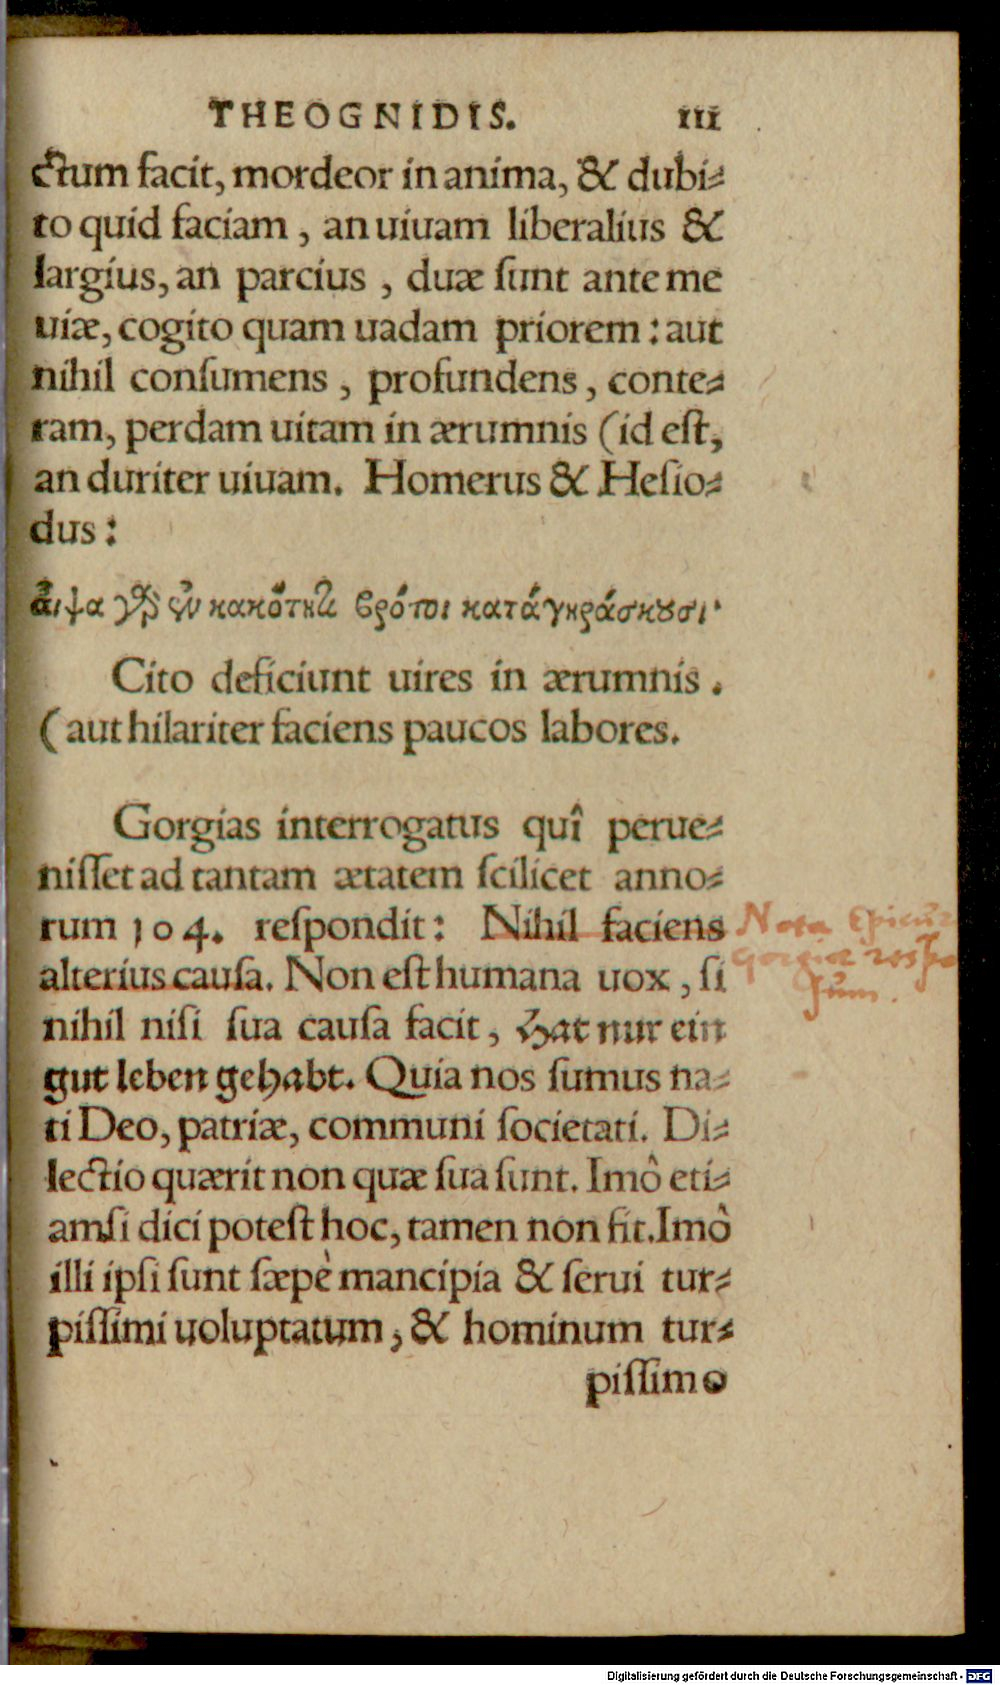 THEOGNIDIS. III
ctum facit, mordeor in anima, & dubi⸗
to quid faciam, an uiuam liberalius &
largius, an parcius, duæ sunt ante me
uiæ, cogito quam uadam priorem: aut
nihil consumens, profundens, conte⸗
ram, perdam uitam in ærumnis (id est,
an duriter uiuam. Homerus & Hesio⸗
dus:
αἶψα γὰρ ἐν κακότητι βρότοι καταγηράσκουσι·
Cito deficiunt uires in ærumnis.
(aut hilariter faciens paucos labores.
Gorgias interrogatus quî perue⸗
nisset ad tantam ætatem scilicet anno⸗
rum 104. respondit: Nihil faciens
alterius causa. Non est humana uox, si
nihil nisi sua causa facit, Hat nur ein
gut leben gehabt. Quia nos sumus na⸗
ti Deo, patriæ, communi societati. Di⸗
lectio quærit non quæ sua sunt. Imò eti⸗
amsi dici potest hoc, tamen non fit. Imò
illi ipsi sunt sæpè mancipia & serui tur⸗
pissimi uoluptatum, & hominum tur⸗
pissimo
Nota Epicur
Gorgiæ respo
sum.
Digitalisierung gefördert durch die Deutsche Forschungsgemeinschaft - DFG